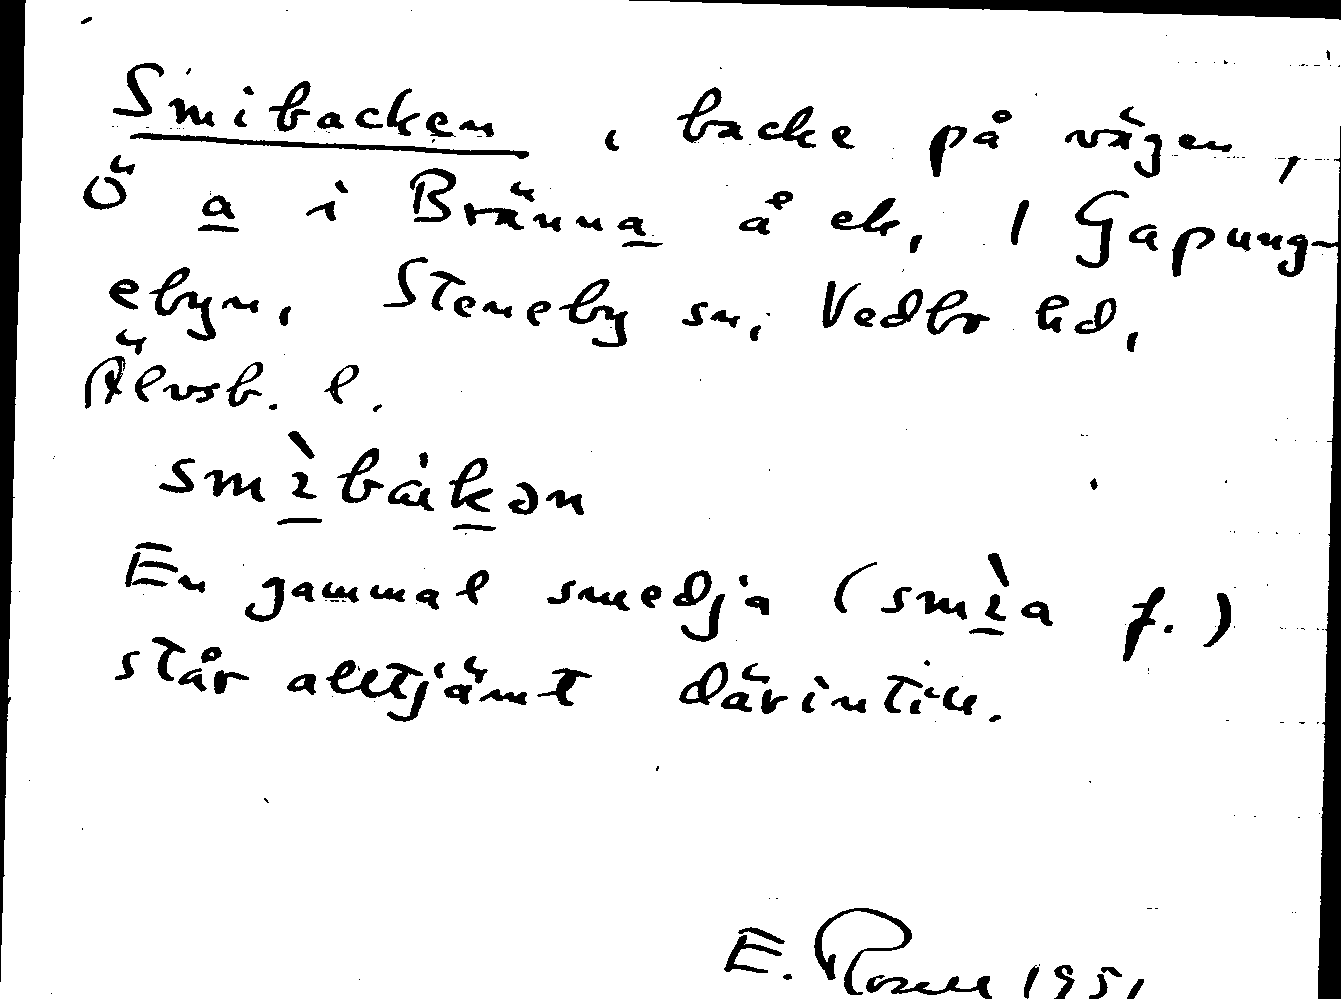 Smibacken, backe på vägen,
Ö a i Bränna å ek, 1 Gapung-
ebyn, Steneby sn, Vedbo hd,
Älvsb. l.
smı̀bàkən
En gammal smedja (smı̀a f.)
står alltjämt därintill.
E. Rosell 1951